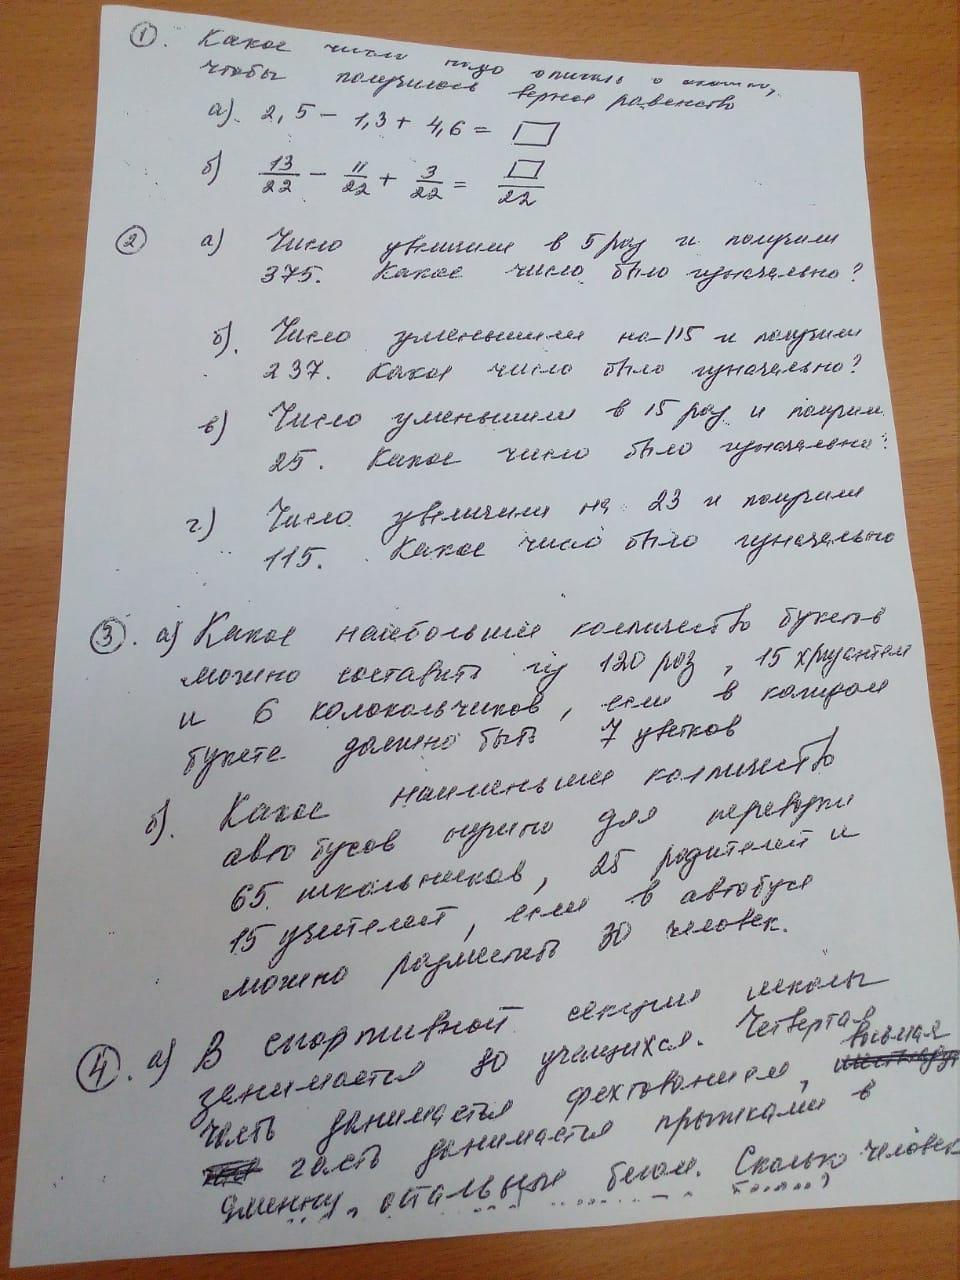 1. Какое число надо вписать в окошко,
чтобы получилось верное равенство
а). 2,5 - 1,3 + 4,6 = □
б) 13/22 - 11/22 + 3/22 = □/22
2 а) Число увеличили в 5 раз и получили
375. Какое число было изначально?
б). Число уменьшили на 115 и получили
237. Какое число было изначально?
в) Число уменьшили в 15 раз и получили
25. Какое число было изначально?
г.) Число увеличили на 23 и получили
115. Какое число было изначально
3. а) Какое наибольшее количество букетов
можно составить из 120 роз, 15 хризантем
и 6 колокольчиков, если в каждом
букете должно быть 7 цветков
б). Какое наименьшее количество
автобусов нужно для перевозки
65 школьников, 25 родителей и
15 учителей, если в автобусе
можно разместить 30 человек.
4. а) В спортивной секции школы
занимается 80 учащихся. Четвертая
часть занимается фехтованием, восьмая
часть занимается прыжками в
длинну, остальные бегом. Сколько человек
бегают?